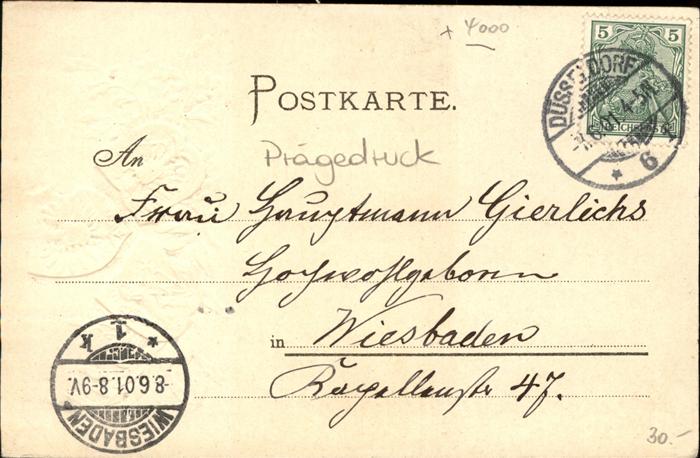 + 4000
5 5
REICHSPOST
DÜSSELDORF
7.6.01. 4-5N.
* 6
POSTKARTE.
Prägedruck
An
Frau Hauptmann Gierlichs
Hochwohlgeboren
in Wiesbaden
Kapellenstr 47.
* 1 k
-8.6.01.8-9V.
WIESBADEN
30.-